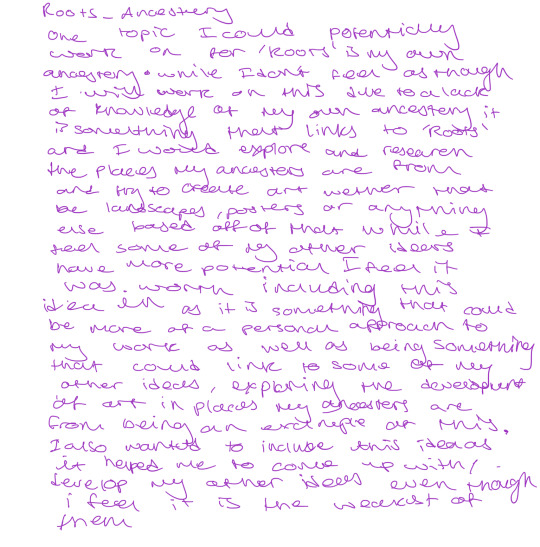 Roots - Ancestery
one topic I could potentially
work on for 'Roots' is my own
ancestery. while I don't feel as though
I will work on this due to a lack
of knowledge of my own ancestery it
is something that links to 'Roots'
and I would explore and research
the places my ancesters are from
and try to create art wether that
be landscapes, posters or anything
else based off of that while I
feel some of my other ideas
have more potential I feel it
was worth including this
idea as it is something that could
be more of a personal approach to
my work as well as being something
that could link to some of my
other ideas, exploring the development
of art in places my ancesters are
from being an example of this.
I also wanted to include this idea as
it helped me to come up with/
develop my other ideas even though
i feel it is the weakest of
them